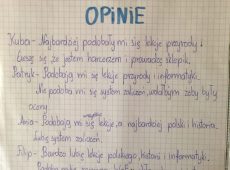 OPINIE
Kuba - Najbardziej podobały mi się lekcje przyrody i
Cieszę się że jestem harcerzem i prowadzę sklepik.
Patryk - Podobają mi się lekcje przyrody i informatyki.
Nie podoba mi się system zalażeń, wolałbym żeby były
oceny.
Ania - Podobają mi się wszystkie lekcje, a najbardziej polski i historia.
Lubię system
Filip - Bardzo lubię lekcje polskiego, historii i informatyki.